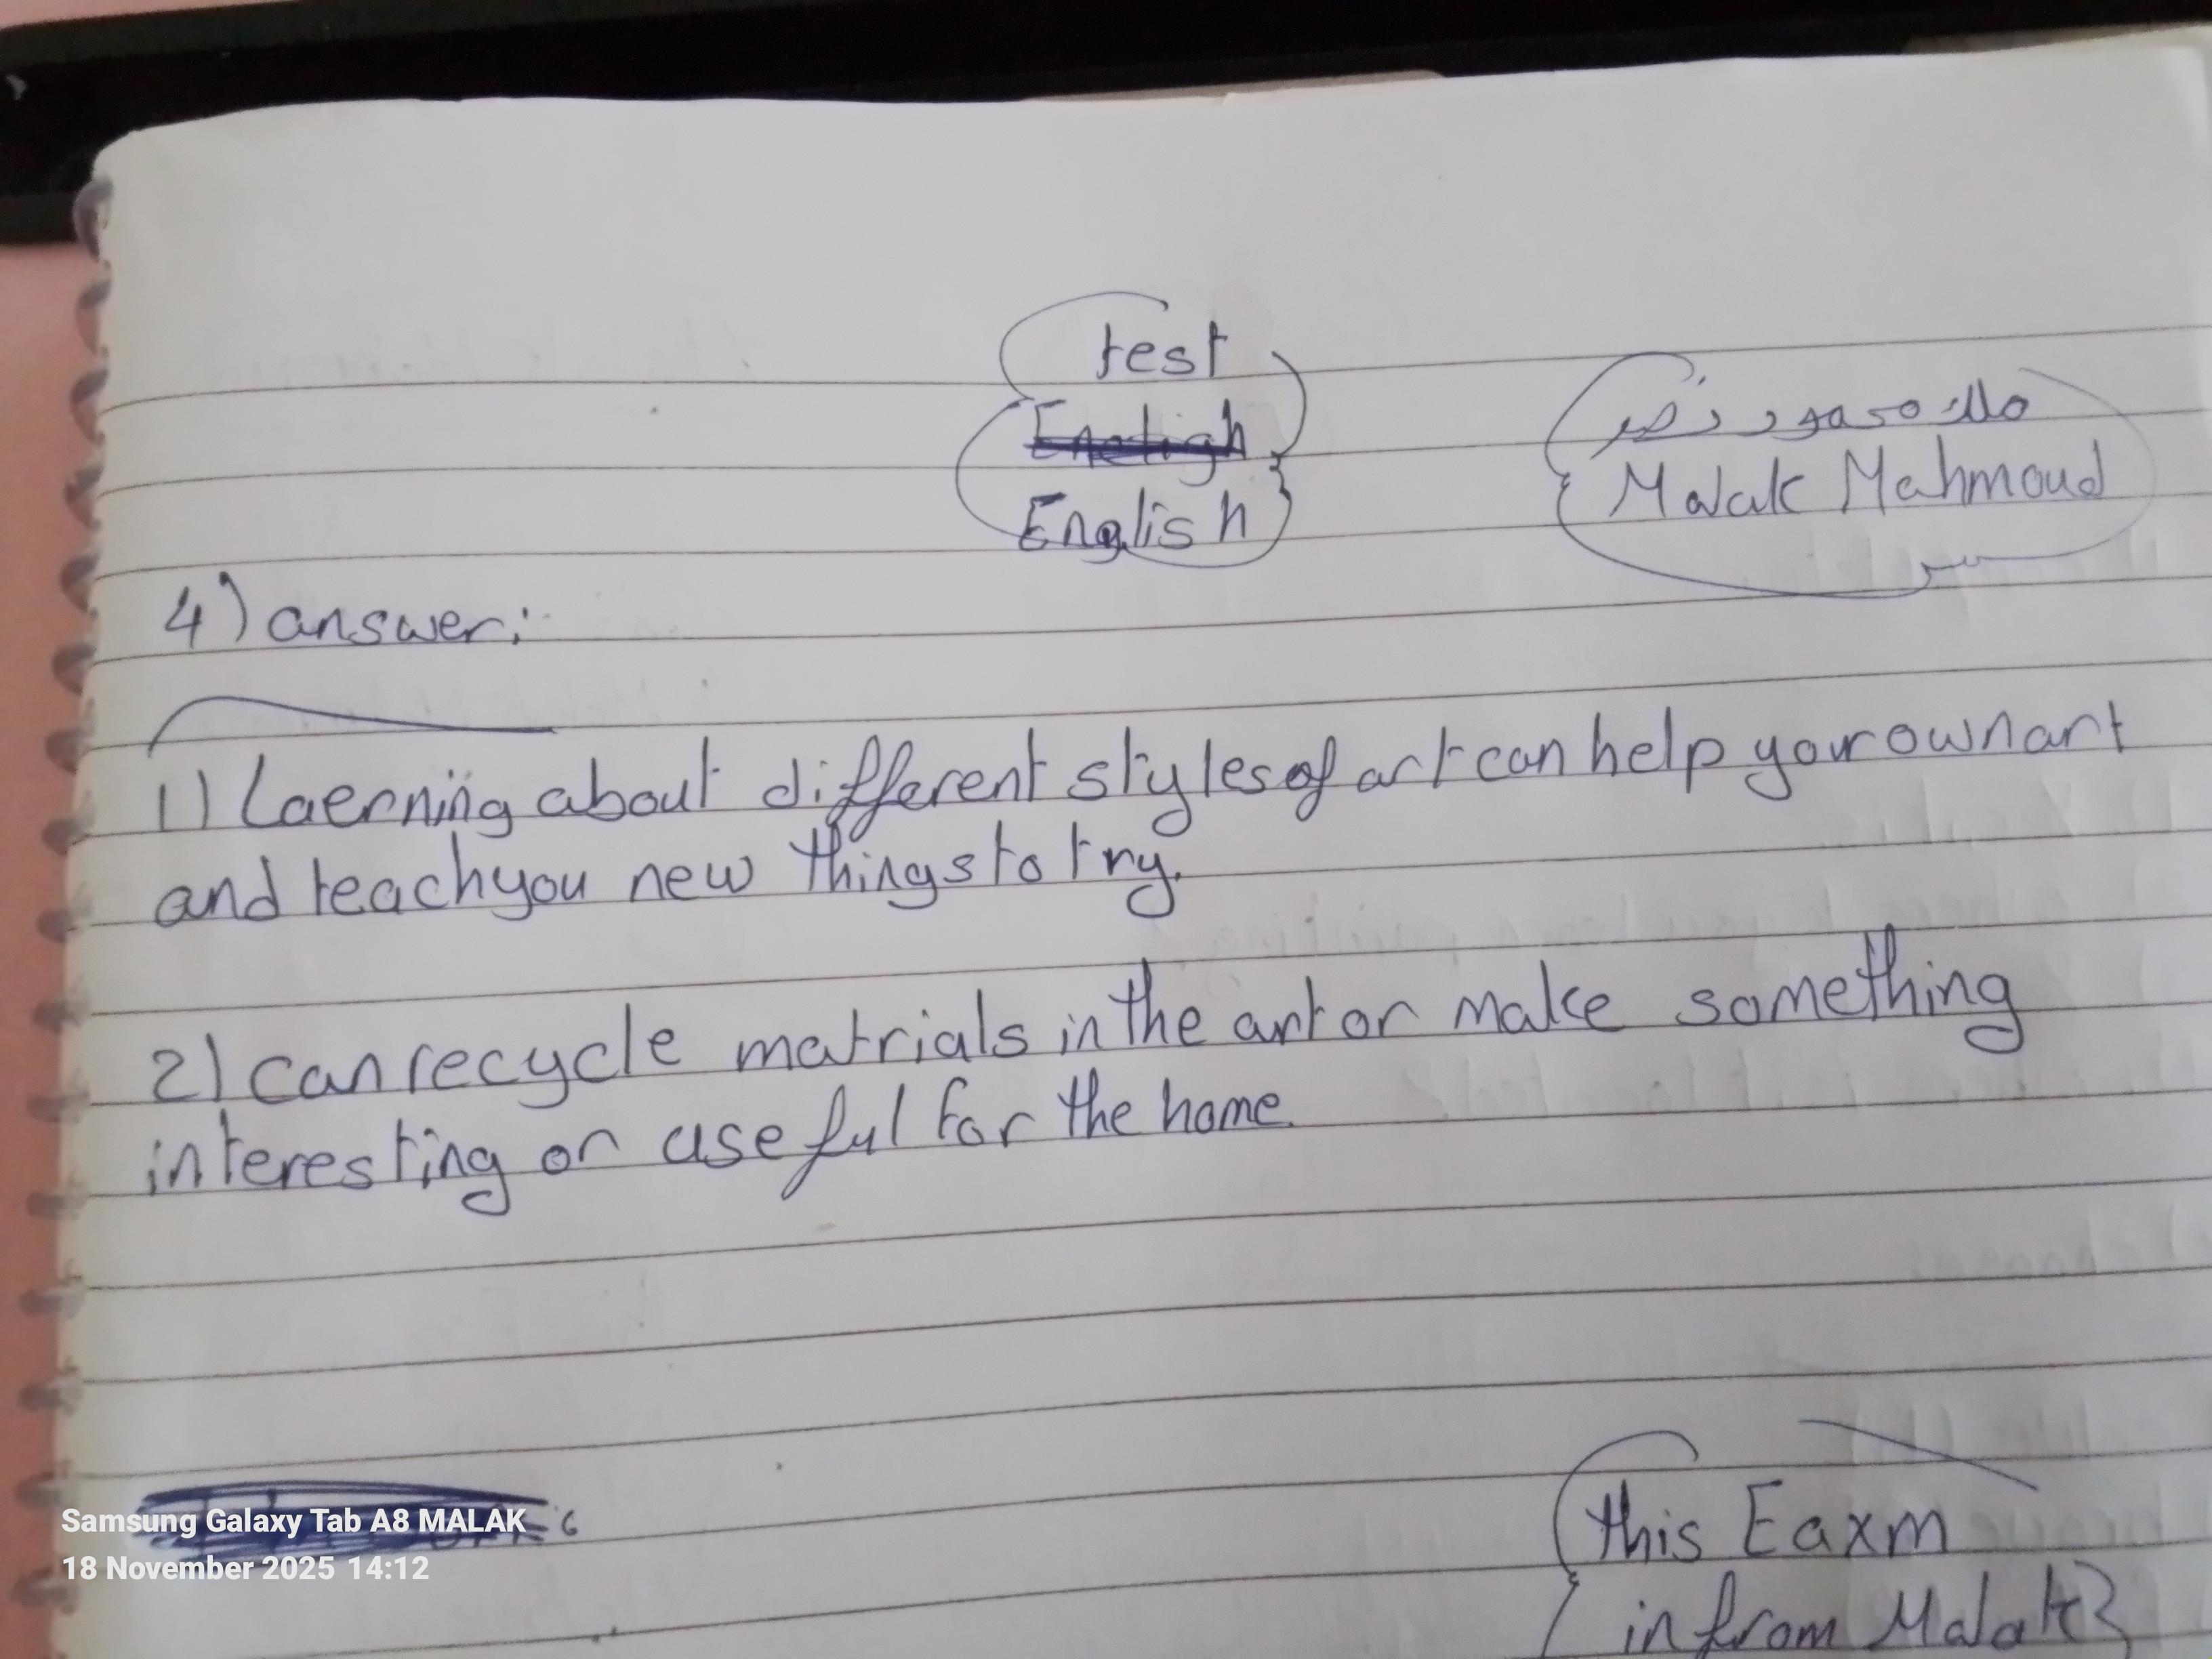 test
English
ملك محمود نصر
Malak Mahmoud
4) answer:
1) Laerning about different styles of art can help your own art
and teach you new things to try.
2) can recycle matrials in the art or make something
interesting or useful for the home.
Samsung Galaxy Tab A8 MALAK
18 November 2025 14:12
this Eaxm
in from Malak